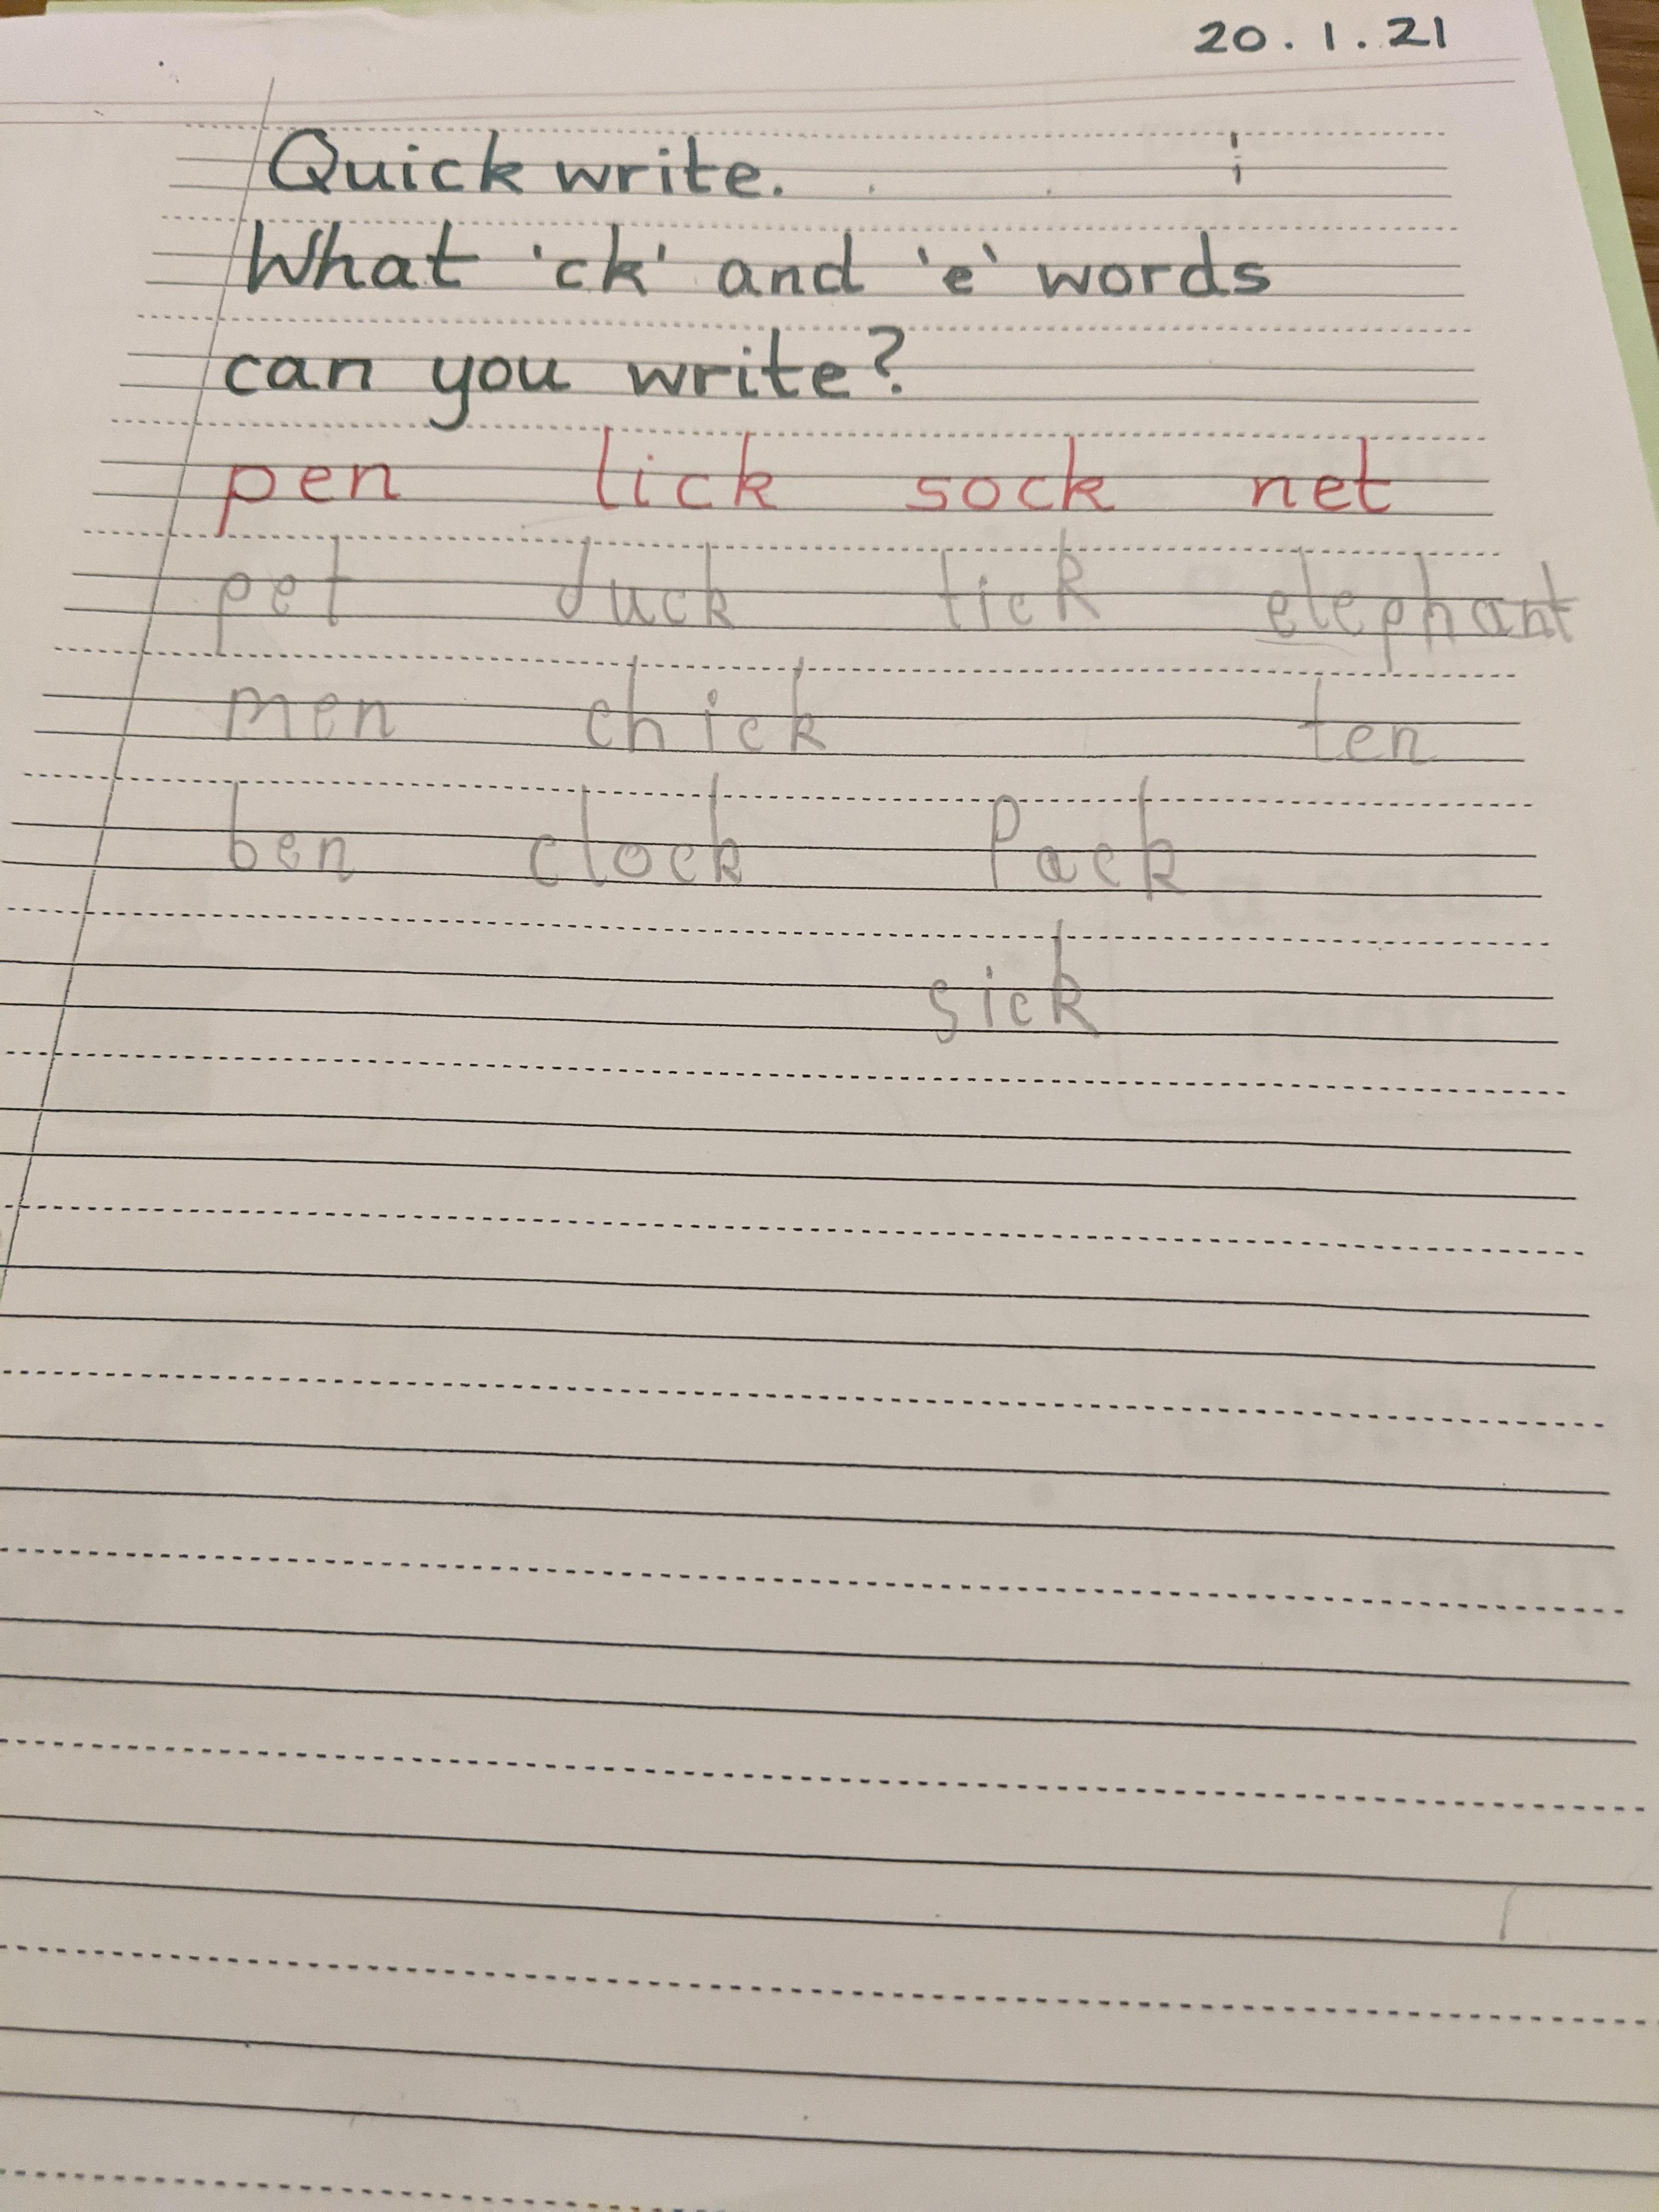 20.1.21
Quick write.
What 'ck' and 'e' words
can you write?
pen lick sock net
pet duck tick elephant
men chick ten
ben clock Pack
sick